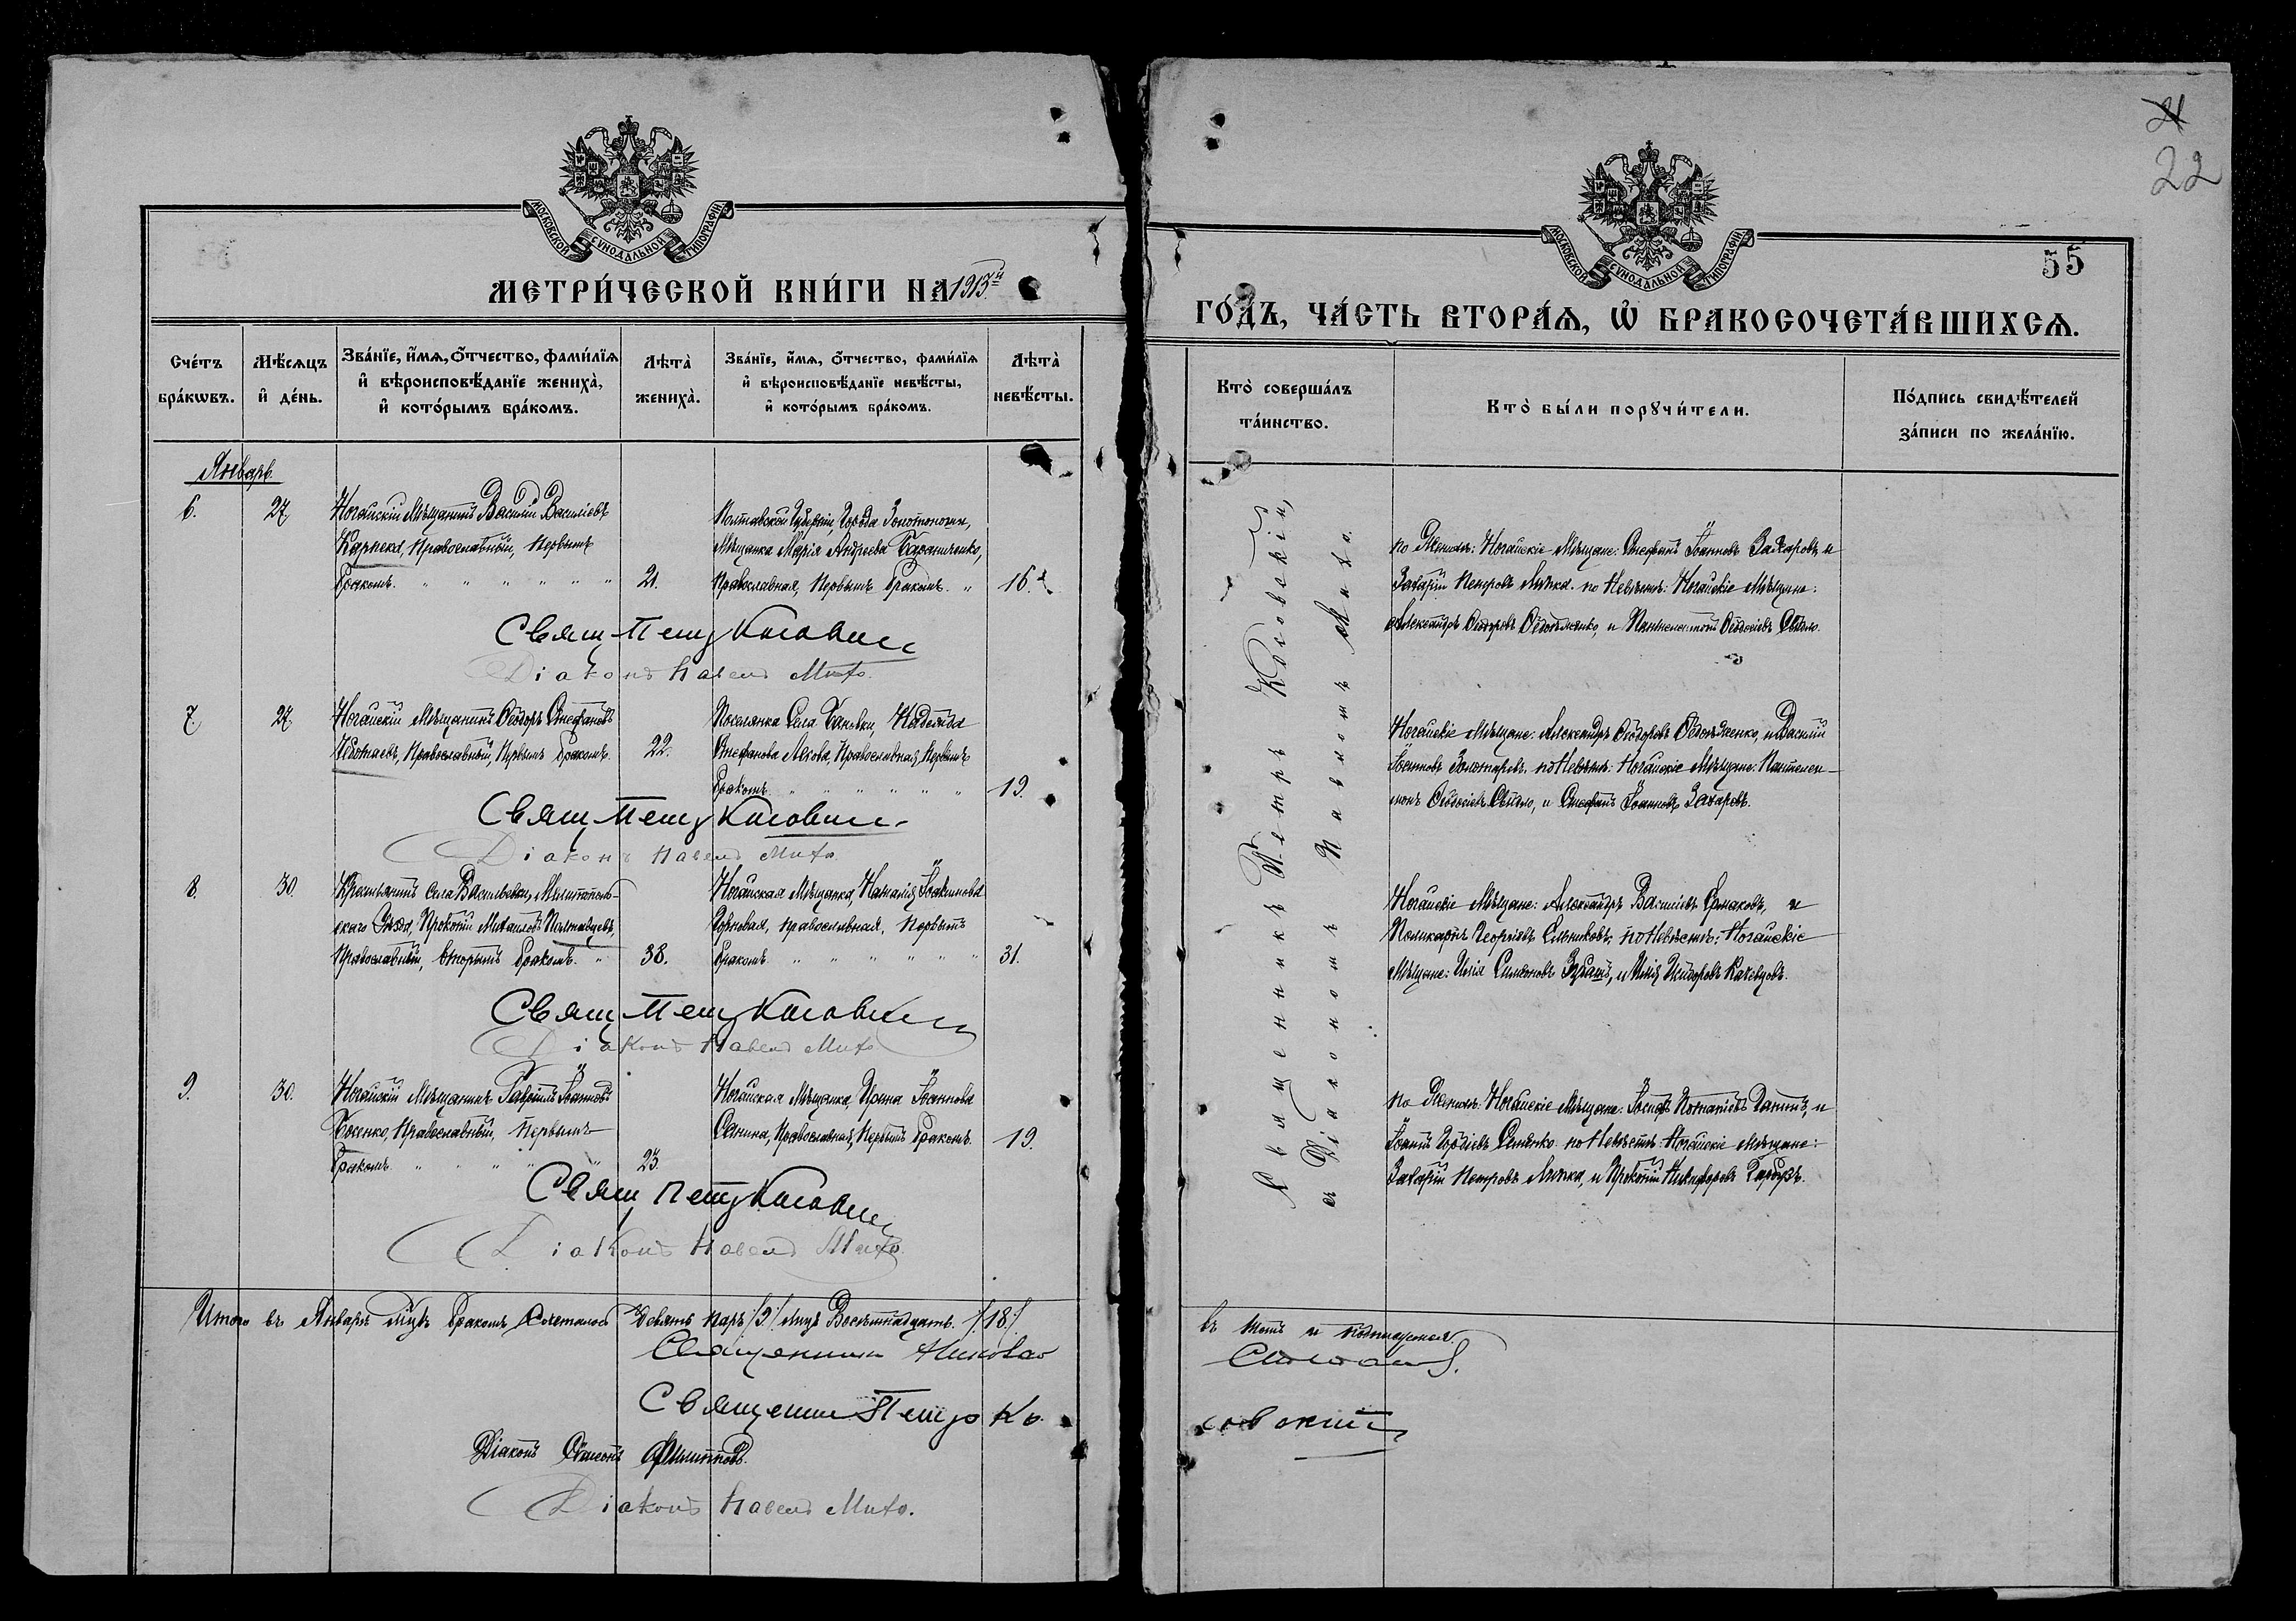 МОСКОВСКОЙ СѴНОДАЛЬНОЙ ТИПОГРАФІИ
МЕТРИ́ЧЕСКОЙ КНИ́ГИ НА 1913й
Сче́тъ бра́кѡвъ.
Мѣ́сѧцъ и҆ де́нь.
Зва́нїе, и҆́мѧ, ѻ҆́тчество, фами́лїѧ и҆ вѣроисповѣ́данїе жениха̀, и҆ кото́рымъ бра́комъ.
Лѣта̀ жениха̀.
Зва́нїе, и҆́мѧ, ѻ҆́тчество, фами́лїѧ и҆ вѣроисповѣ́данїе невѣ́сты, и҆ кото́рымъ бра́комъ.
Лѣта̀ невѣ́сты.
Январь
6.
27
Ногайскій Мѣщанинъ Василій Василіевъ
Карпека, Православный, Первымъ
бракомъ. " " " " " "
21.
Полтавской Губерніи, Города Золотоноши,
Мѣщанка Марія Андреева
Православная, Первымъ бракомъ. "
16½
Свящ. Петръ Косовскій
Діаконъ Павелъ Михо.
7.
27
Ногайскій Мѣщанинъ Ѳеодоръ Стефановъ
Чеботаевъ, Православный, Первымъ бракомъ.
22.
Поселянка Села Бановки, Надежда
Стефанова Лекова, Православная, Первымъ
бракомъ. " " " " " "
19.
Свящ. Петръ Косовскій
Діаконъ Павелъ Михо.
8.
30.
Крестьянинъ Села Васильевки, Мелитополь-
скаго Уѣзда, Прокопій Михаиловъ Полтавцевъ,
Православный, вторымъ бракомъ. "
38.
Ногайская Мѣщанка, Наталія Іоакимова
Горновая, православная, Первымъ
бракомъ. " " " " " "
31.
Свящ. Петръ Косовскій
Діаконъ Павелъ Михо
9.
30.
Ногайскій Мѣщанинъ Гавріилъ Іоанновъ
Босенко, Православный, Первымъ
бракомъ. " " " "
23.
Ногайская Мѣщанка, Ирина Іоаннова
Сенина, Православная, Первымъ бракомъ.
19.
Свящ. Петръ Косовскій
Діаконъ Павелъ Михо.
Итого въ Январѣ м-цѣ бракомъ Сочеталось Девять паръ /9/ лицъ Восемнадцать. /18/
Священникъ Николай
Священникъ Петръ Ко-
Діаконъ Симеонъ Филипповъ.
Діаконъ Павелъ Михо.
21
22
55
МОСКОВСКОЙ СѴНОДАЛЬНОЙ ТИПОГРАФІИ
ГО́ДЪ, ЧА́СТЬ ВТОРА́Ѧ, Ѡ҆ БРАКОСОЧЕТА́ВШИХСѦ.
Кто̀ соверша́лъ та́инство.
Кто̀ бы́ли порꙋчи́тели.
По́дпись свидѣ́телей за́писи по жела́нїю.
Священникъ Петръ Косовскій,
съ Діакономъ Павломъ Михо.
по Женихѣ: Ногайскіе Мѣщане: Стефанъ Іоанновъ Захаровъ и
Захарій Петровъ Лепка. по Невѣстѣ: Ногайскіе Мѣщане:
Александръ Ѳеодоровъ и Пантелеимонъ Ѳеодосіевъ
Ногайскіе Мѣщане: Александръ Ѳеодоровъ и Василій
Іоанновъ Золотаревъ. по Невѣстѣ: Ногайскіе Мѣщане: Пантелеи-
монъ Ѳеодосіевъ и Стефанъ Іоанновъ Захаровъ.
Ногайскіе Мѣщане: Александръ Василіевъ Ермаковъ, и
Поликарпъ Георгіевъ по Невѣстѣ: Ногайскіе
Мѣщане: Илія Симеоновъ и Илія
по Женихѣ: Ногайскіе Мѣщане: Іосифъ и
Іоаннъ по Невѣстѣ: Ногайскіе Мѣщане:
Захарій Петровъ Лепка, и Прокопій Никифоровъ
въ томъ и подписуемся.
совскій